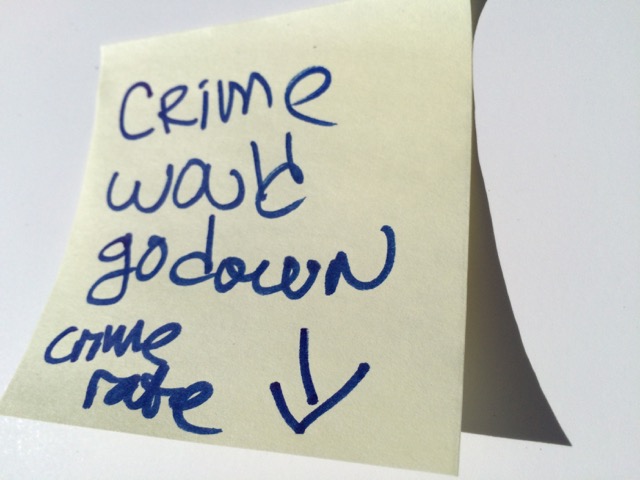 CRime
would
go down
crime
rate ↓